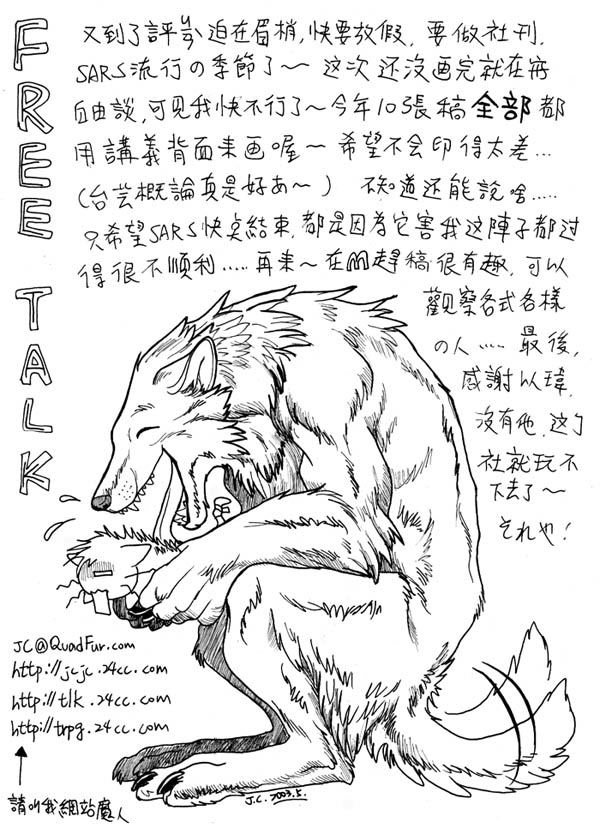 FREE TALK
又到了評鑑迫在眉梢,快要放假,要做社刊,
SARS流行の季節了～ 这次还沒画完就在寫
自由談,可见我快不行了～今年10張稿全部都
用講義背面来画喔～ 希望不会印得太差…
(台芸概論真是好あ～) 不知道还能說啥.....
只希望SARS快点結束,都是因為它害我这陣子都过
得很不順利.....再来～在M趕稿很有趣,可以
觀察各式各樣
の人.....最後,
感謝以瑋,
沒有他,这个
社就玩不
下去了～
それや!
JC@QuadFur.com
http://jcjc.24cc.com
http://tlk.24cc.com
http://trpg.24cc.com
請叫我網站魔人
J.C. 2003.5.